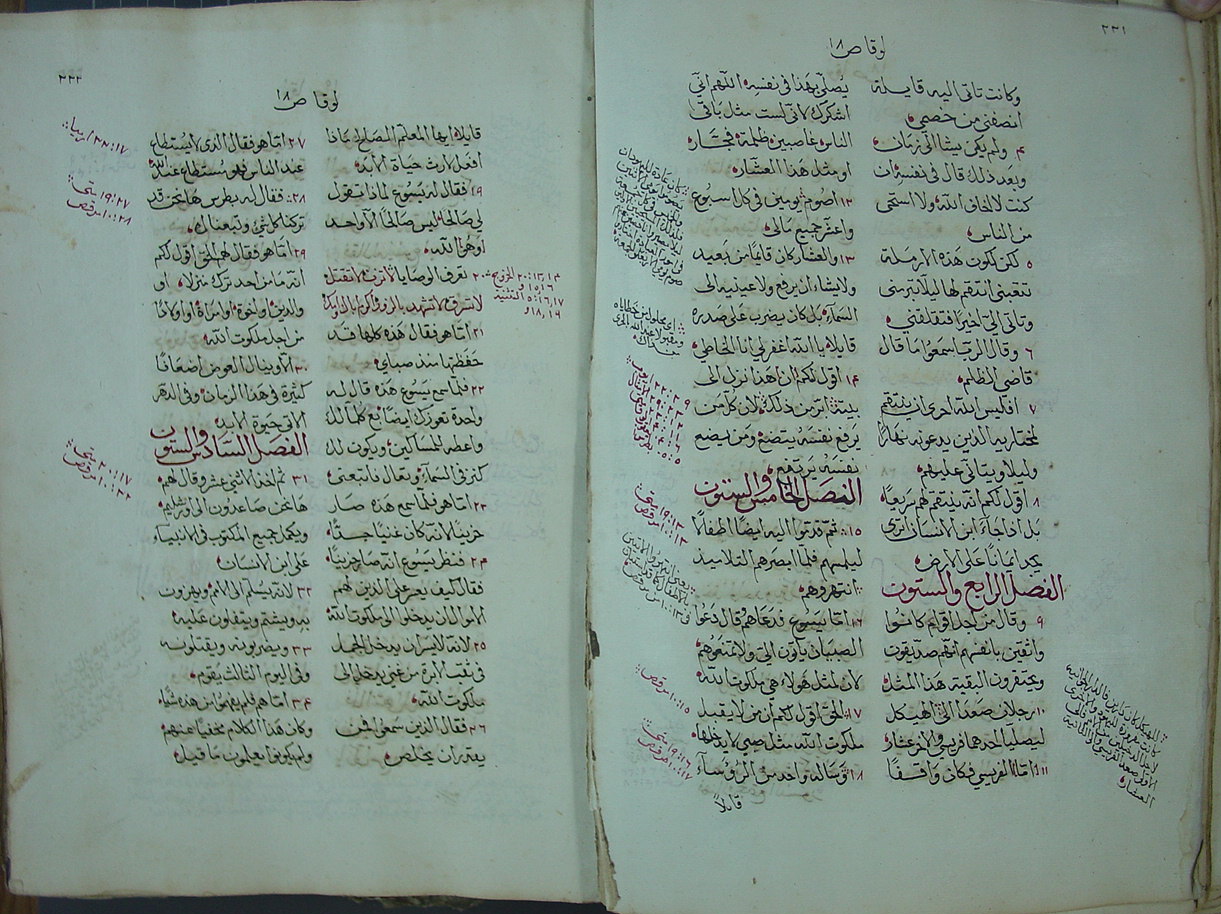 ٢٣١
لوقا ص ١٨
وكانت تاتى اليه قايلة
انصفنى من خصمى
٤ ولم يكن يشا الى زمان
وبعد ذلك قال فى نفسه ان
كنت لا اخاف الله ولا استحى
من الناس
٥ لكن لكون هذه الارملة
تتعبنى انتقم لها ليلا تبرمنى
وتاتى الىّ اخيرا فتقلقنى
٦ وقال الرب اسمعوا ما قال
قاضى الظلم
٧ افليس الله احرى ان ينتقم
لمختاريه الذين يدعونه نهارا
وليلا ويتانى عليهم
٨ اقول لكم انه ينتقم لهم سريعا
بل اذا جاء ابن الانسان اترى
يجد ايمانا على الارض
الفصل الرابع والستون
٩ وقال من اجل اقوام كانوا
واثقين بانفسهم انهم صديقون
ويحتقرون البقية هذا المثل
١٠ رجلان صعدا الى الهيكل
ليصليا احدهما فريسى والاخر عشار
١١ امّا الفريسى فكان واقفا
يصلى بهذا فى نفسه اللهم انى
اشكرك لانى لست مثل باقى
الناس غاصبين ظلمة فجار
او مثل هذا العشار
١٢ اصوم يومين فى كل اسبوع
واعشر جميع مالى
١٣ والعشار كان قايما من بعيد
ولا يشاء ان يرفع ولا عينيه الى
السماء بل كان يضرب على صدره
قايلا يا الله اغفر لى انا الخاطى
١٤ اقول لكم ان هذا نزل الى
بيته اتر من ذلك لان كل من
يرفع نفسه يتضع ومن يضع
نفسه يرتفع
الفصل الخامس والستون
١٥ ثم قدموا اليه ايضا اطفالا
ليلمسهم فلما ابصرهم التلاميذ
انتهروهم
١٦ امّا يسوع فدعاهم وقال دعوا
الصبيان ياتون الىّ ولا تمنعوهم
لان لمثل هولاء هى ملكوت الله
١٧ الحق اقول لكم ان من لا يقبل
ملكوت الله مثل صبى لا يدخلها
١٨ وساله واحد من الروساء
قايلا
متى ١٩:١٣
مرقص ١٠:١٣
مرقص ١٠:١٥
متى ١٩:١٦
لوقا ص ١٨
قايلا ايها المعلم الصالح ماذا
افعل لارث حياة الابد
١٩ فقال له يسوع لماذا تقول
لى صالحا ليس صالحا الا واحد
وهو الله
٢٠ تعرف الوصايا لا تزن لا تقتل
لا تسرق لا تشهد بالزور اكرم اباك وامك
٢١ امّا هو فقال هذه كلها قد
حفظتها منذ صباى
٢٢ فلما سمع يسوع هذه قال له
واحدة تعوزك ايضا بع كلما لك
واعطه للمساكين ويكون لك
كنز فى السماء وتعال فاتبعنى
٢٣ امّا هو فلما سمع هذه صار
حزينا لانه كان غنيا جدا
٢٤ فنظر يسوع انه صار حزينا
فقال كيف يعسر على الذين لهم
الاموال ان يدخلوا الى ملكوت الله
٢٥ لانه لايسر ان يدخل الجمل
فى ثقب الابرة من غنى يدخل الى
ملكوت الله
٢٦ فقال الذين سمعوا فمن
يقدر ان يخلص
٢٧ امّا هو فقال الذى لا يستطاع
عند الناس فهو مستطاع عند الله
٢٨ فقال له بطرس ها نحن قد
تركنا كل شى وتبعناك
٢٩ امّا هو فقال لهم الحق اقول لكم
انه ما من احد ترك منزلا او
والدين او اخوة او امراة او اولادا
من اجل ملكوت الله
٣٠ الا وينال العوض اضعافا
كثيرة فى هذا الزمان وفى الدهر
الاتى حيوة الابد
الفصل السادس والستون
٣١ ثم اخذ الاثنى عشر وقال لهم
ها نحن صاعدون الى اورشليم
ويكمل جميع المكتوب فى الانبياء
على ابن الانسان
٣٢ لانه يسلم الى الامم ويهزون
به ويشتم ويتفلون عليه
٣٣ ويضربونه ويقتلونه
وفى اليوم الثالث يقوم
٣٤ امّا هم فلم يفهموا من هذه شيا
وكان هذا الكلام مخفيا عنهم
ولم يكونوا يعلمون ما قيل
ارميا ٣٢:١٧
متى ١٩:٢٧
مرقص ١٠:٢٨
متى ٢٠:١٧
مرقص ١٠:٣٢